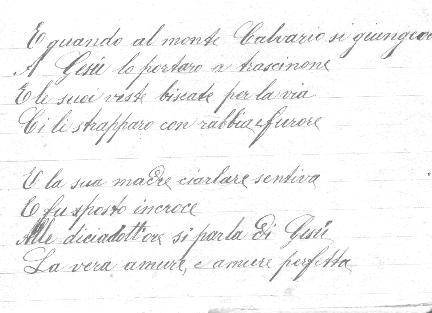 E quando al monte Calvario si giungeva
A Gesù lo portaro a trascinone
E le suoi veste biscate per la via
Ci li strapparo con rabbia e furore
E la sua madre ciarlare sentiva
E fu sposto incroce
Alle diciadott'ore si parla di Gesù
La vera amure, e amure perfetta